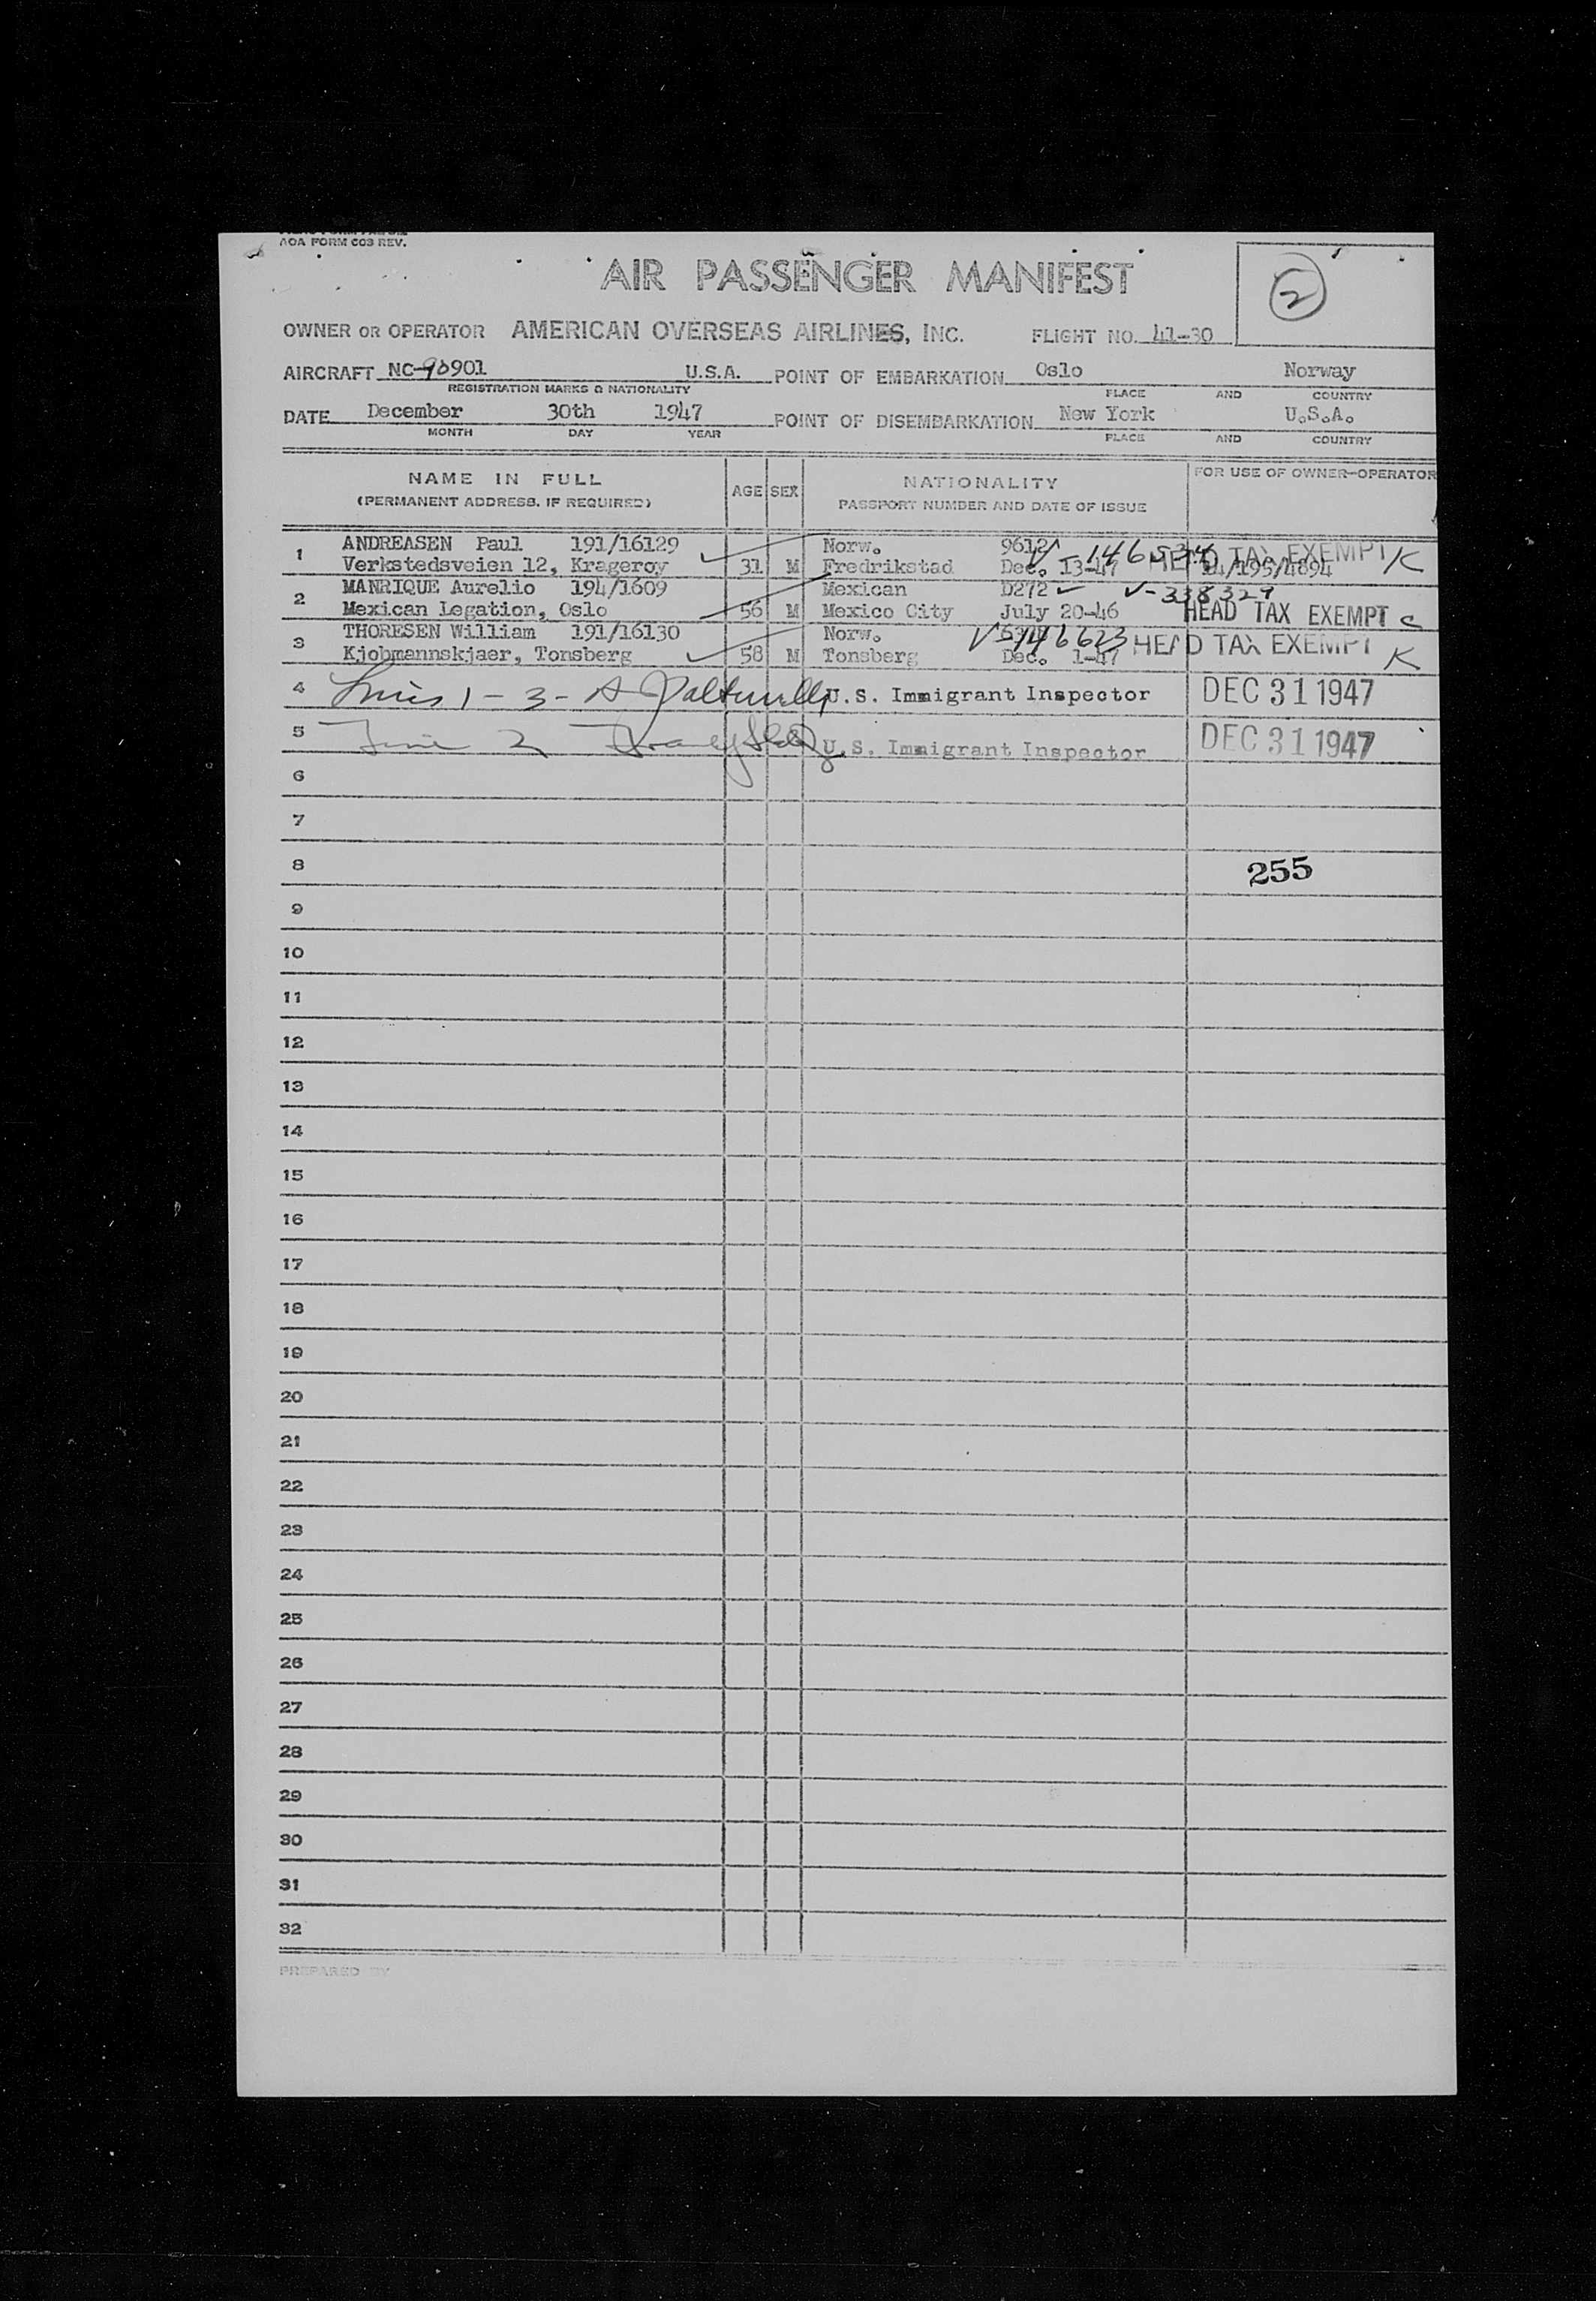 AOA FORM 603 REV.
AIR PASSENGER MANIFEST
2
OWNER OR OPERATOR AMERICAN OVERSEAS AIRLINES, INC. FLIGHT NO. 41-30
AIRCRAFT NC-90901 U.S.A. POINT OF EMBARKATION Oslo Norway
REGISTRATION MARKS & NATIONALITY PLACE AND COUNTRY
DATE December 30th 1947 POINT OF DISEMBARKATION New York U.S.A.
MONTH DAY YEAR PLACE AND COUNTRY
NAME IN FULL AGE SEX NATIONALITY FOR USE OF OWNER-OPERATOR
(PERMANENT ADDRESS, IF REQUIRED) PASSPORT NUMBER AND DATE OF ISSUE
1 ANDREASEN Paul 191/16129 Norw. 9612 146534 HEAD TAX EXEMPT K
Verkstedsveien 12, Krageroy 31 M Fredrikstad Dec. 13-47
2 MANRIQUE Aurelio 194/1609 Mexican D272 V-338329
Mexican Legation, Oslo 56 M Mexico City July 20-46 HEAD TAX EXEMPT
3 THORESEN William 191/16130 Norw. V 146623 HEAD TAX EXEMPT K
Kjobmannskjaer, Tonsberg 58 M Tonsberg Dec. 1-47
4 Lines 1 - 3 - U.S. Immigrant Inspector DEC 31 1947
5 Line 2 U.S. Immigrant Inspector DEC 31 1947
6
7
8 255
9
10
11
12
13
14
15
16
17
18
19
20
21
22
23
24
25
26
27
28
29
30
31
32
PREPARED BY